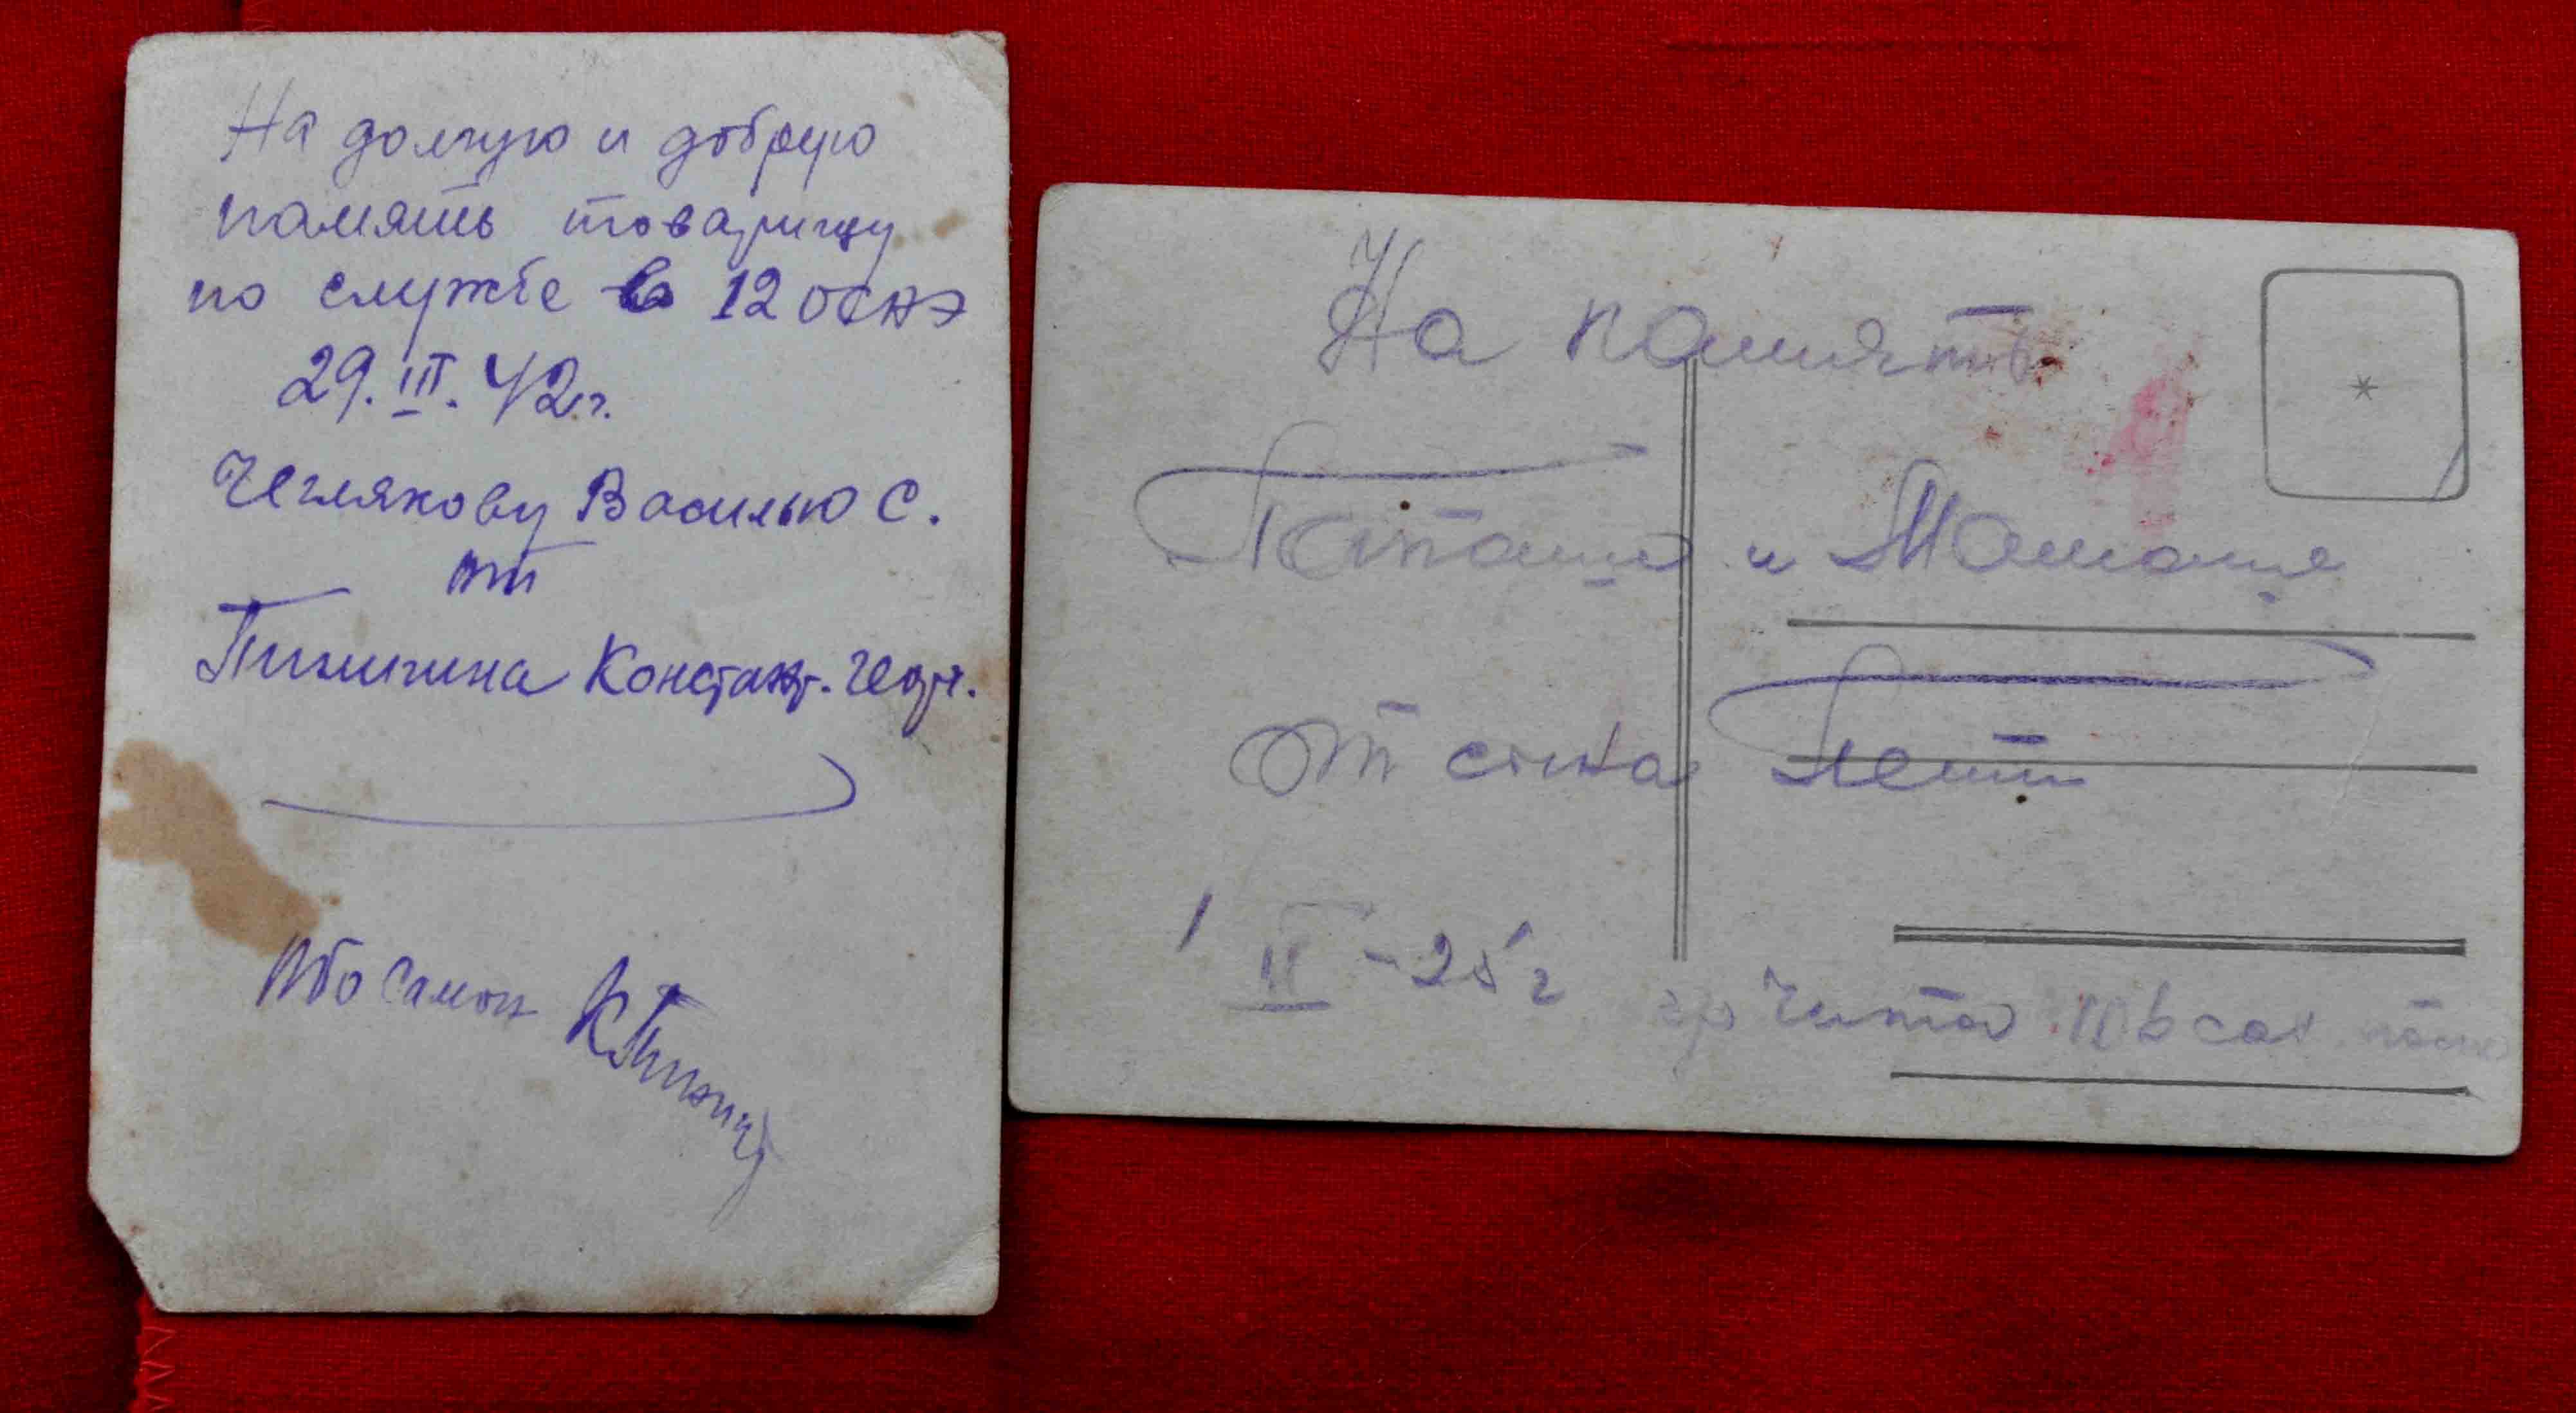 На долгую и добрую
память товарищу
по службе в 12 ОСАЭ
29.III.42г.
Чеглякову Василью С.
от
Пинигина Констант. Геор.
К
На память
Папаше и Мамаше
От сына Пети
1 II - 25 г
гр Чита